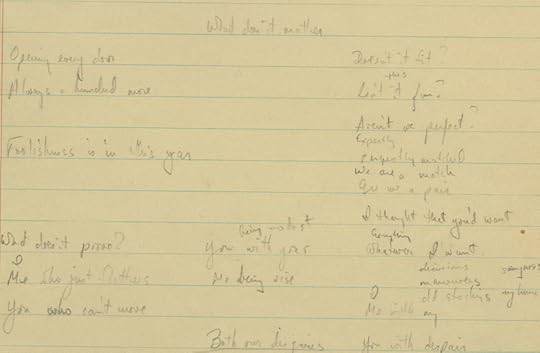 What don't mother
Opening every door
Always a hundred more
Foolishness is in this year
What doesn't prove?
Me who just blathers
You who can't move
being modest
You with your
Me being wise
Both our disguises
Doesn't it fit?
this
Isn't it fun?
Aren't we perfect?
Expertly
expertly matched
We are a match
Are we a pair
I thought that you'd want
Everything
Whatever I want
decisions
maneuvers
old stockings
my
Me with my
You with despair